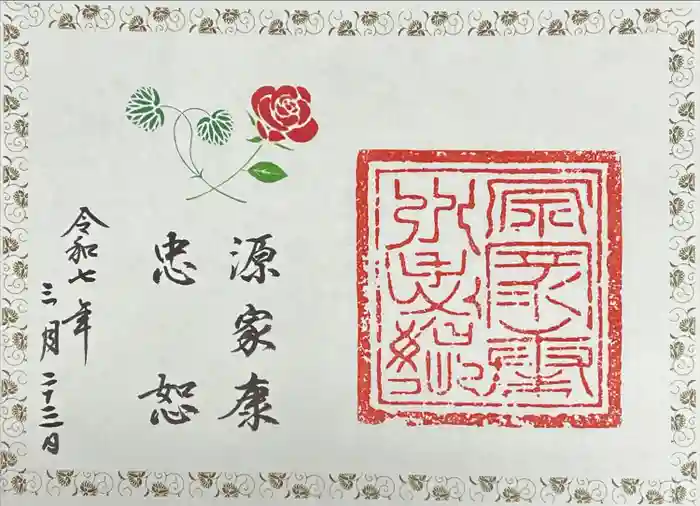 源家康
忠恕
令和七年
三月二十三日